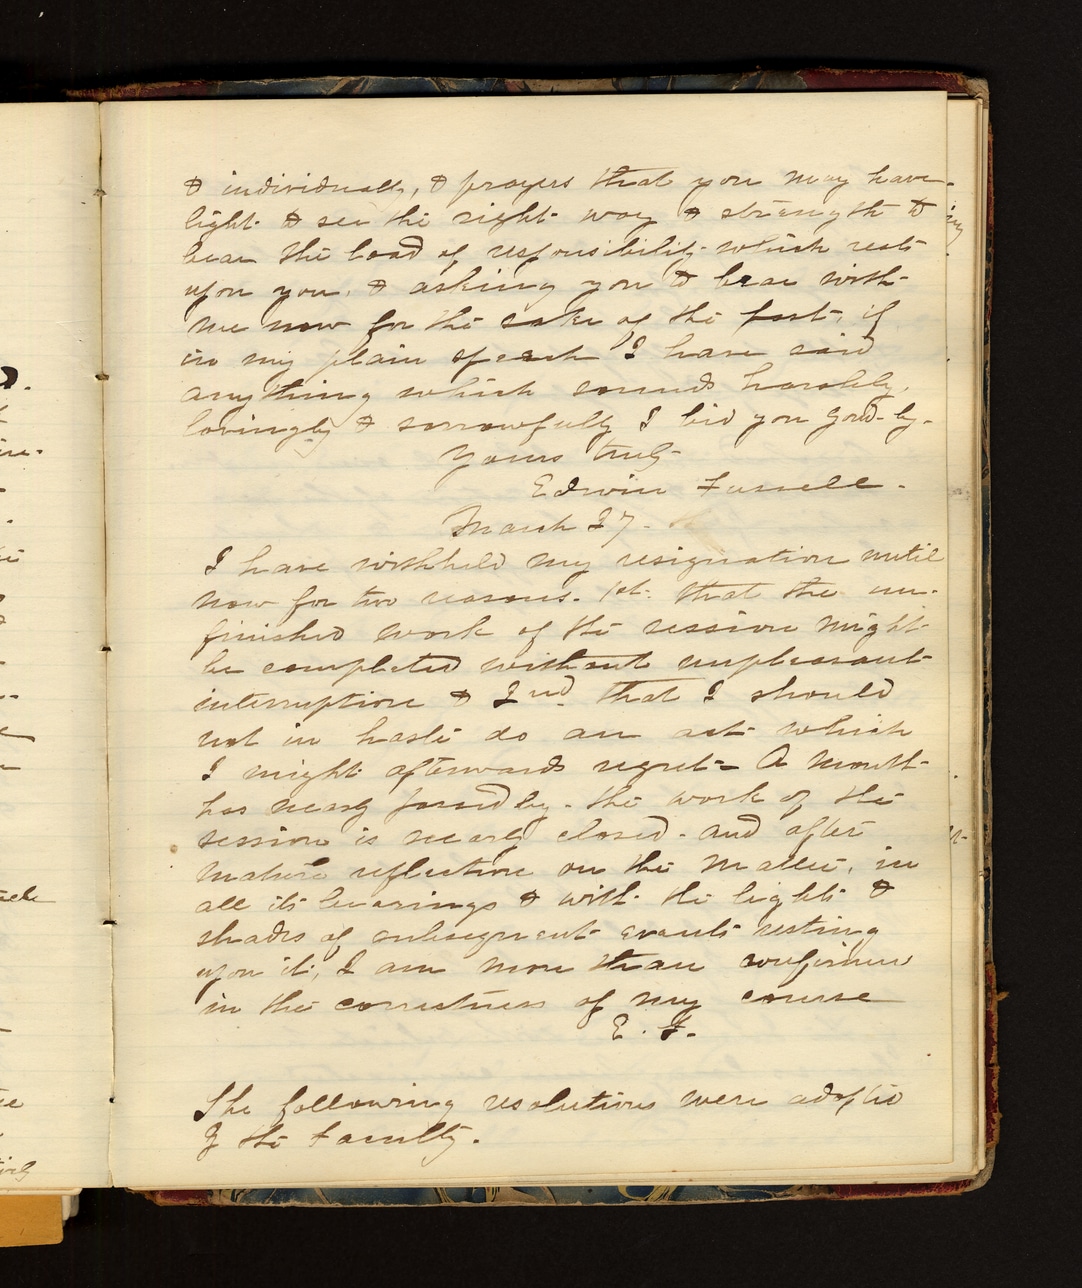 & individually, & prayers that you may have
light to see the right way & strength to
bear the load of responsibility which rests
upon you, & asking you to bear with
me now for the sake of the past, if
in my plain speech I have said
anything which sounds harshly,
lovingly & sorrowfully I bid you good-by.
Yours truly
Edwin Fussell.
March 27.
I have withheld my resignation until
now for two reasons. 1st. that the un-
finished work of the session might
be completed without unpleasant
interruption & 2nd. that I should
not in haste do an act which
I might afterwards regret - A month
has nearly passed by - the work of the
session is nearly closed - and after
mature reflection on the matter, in
all its bearings & with the lights &
shades of subsequent events resting
upon it, I am more than confirmed
in the correctness of my course
E. F.
The following resolutions were adopted
by the Faculty.